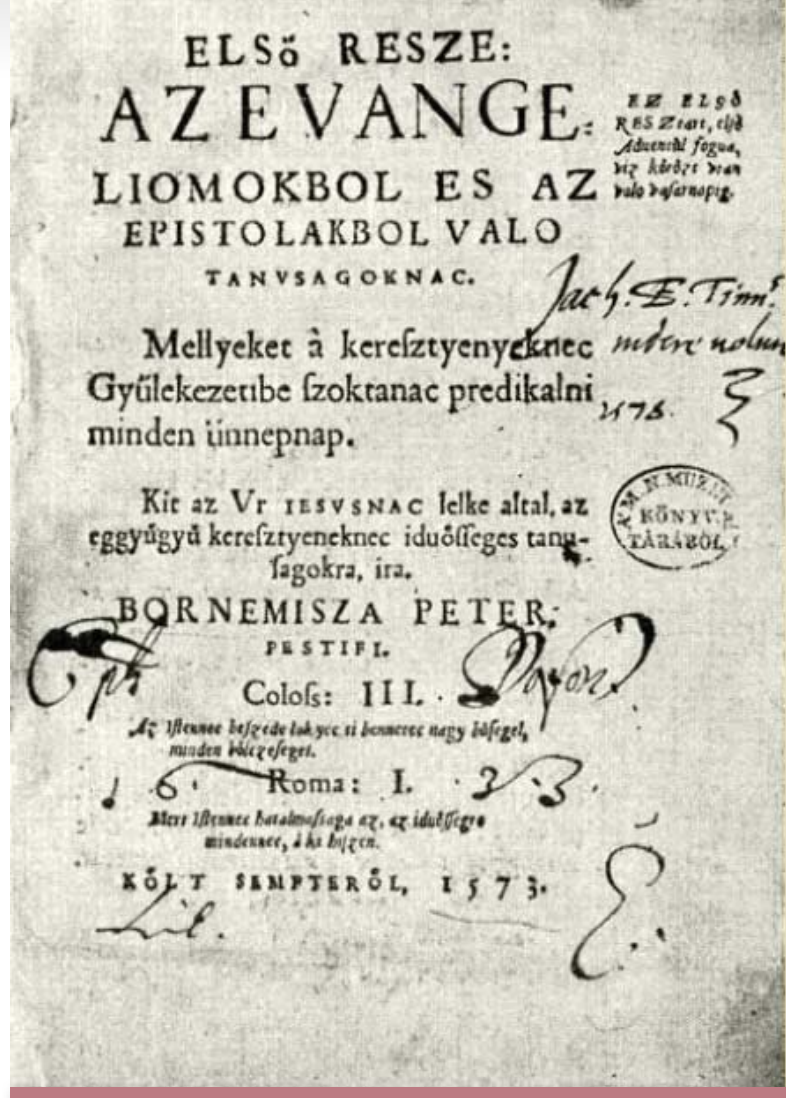 ELSő RESZE:
AZ EVANGE-
LIOMOKBOL ES AZ
EPISTOLAKBOL VALO
TANVSAGOKNAC.
EZ ELSŐ
RESZ tart, első
Aduenttöl fogua,
viz köröze vtan
valo vasarnapig.
Mellyeket à kereſztyenyeknec
Gyűlekezetibe ſzoktanac predikalni
minden ünnepnap.
1578.
Kit az Vr IESVSNAC lelke altal, az
eggyűgyű kereſztyeneknec iduöſſeges tanu-
ſagokra, ira.
A M. N. MUZ.
KÖNYV-
TÁRÁBÓL
BORNEMISZA PETER,
PESTIFI.
Coloſs: III.
Az Iſtennec beſzede lakyec ti bennetec nagy böſegel,
minden bölczeſegel.
16.
Roma: I.
Mert Iſtennec hatalmaſſaga az, az iduöſſegre
mindennec, à ki hiſzen.
KŐLT SEMPTERŐL, 1573.